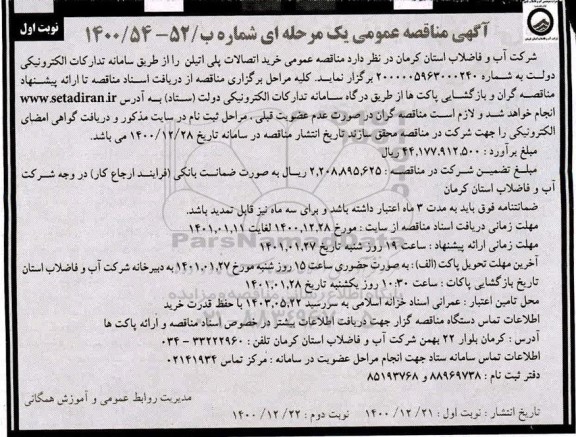 نوبت اول
آگهی مناقصه عمومی یک مرحله ای شماره ب/۵۲-۱۴۰۰/۵۴
شرکت آب و فاضلاب استان کرمان در نظر دارد مناقصه عمومی خرید اتصالات پلی اتیلن را از طریق سامانه تدارکات الکترونیکی
دولت به شماره ۲۰۰۰۰۰۵۹۶۳۰۰۰۲۴۰ برگزار نماید. کلیه مراحل برگزاری مناقصه از دریافت اسناد مناقصه تا ارائه پیشنهاد
مناقصه گران و بازگشایی پاکت ها از طریق درگاه سامانه تدارکات الکترونیکی دولت (ستاد) به آدرس www.setadiran.ir
انجام خواهد شد و لازم است مناقصه گران در صورت عدم عضویت قبلی، مراحل ثبت نام در سایت مذکور و دریافت گواهی امضای
الکترونیکی را جهت شرکت در مناقصه محقق سازند تاریخ انتشار مناقصه در سامانه تاریخ ۱۴۰۰/۱۲/۲۸ می باشد.
مبلغ برآورد : ۴۴,۱۷۷,۹۱۲,۵۰۰ ریال
مبلغ تضمین شرکت در مناقصه : ۲,۲۰۸,۸۹۵,۶۲۵ ریال به صورت ضمانت بانکی (فرایند ارجاع کار) در وجه شرکت
آب و فاضلاب استان کرمان
ضمانتنامه فوق باید به مدت ۳ ماه اعتبار داشته باشد و برای سه ماه نیز قابل تمدید باشد.
مهلت زمانی دریافت اسناد مناقصه از سایت : مورخ ۱۴۰۰,۱۲,۲۸ لغایت ۱۴۰۱,۰۱,۱۱
مهلت زمانی ارائه پیشنهاد : ساعت ۱۹ روز شنبه تاریخ ۱۴۰۱,۰۱,۲۷
آخرین مهلت تحویل پاکت (الف) : به صورت حضوری ساعت ۱۵ روز شنبه مورخ ۱۴۰۱,۰۱,۲۷ به دبیرخانه شرکت آب و فاضلاب استان
تاریخ بازگشایی پاکات : ساعت ۱۰:۳۰ روز یکشنبه تاریخ ۱۴۰۱,۰۱,۲۸
محل تامین اعتبار : عمرانی اسناد خزانه اسلامی به سررسید ۱۴۰۳,۰۵,۲۲ با حفظ قدرت خرید
اطلاعات تماس دستگاه مناقصه گزار جهت دریافت اطلاعات بیشتر در خصوص اسناد مناقصه و ارائه پاکت ها
آدرس : کرمان بلوار ۲۲ بهمن شرکت آب و فاضلاب استان کرمان تلفن : ۳۳۲۲۲۹۶۰ - ۰۳۴
اطلاعات تماس سامانه ستاد جهت انجام مراحل عضویت در سامانه : مرکز تماس ۰۲۱۴۱۹۳۴
دفتر ثبت نام : ۸۸۹۶۹۷۳۸ و ۸۵۱۹۳۷۶۸
مدیریت روابط عمومی و آموزش همگانی
تاریخ انتشار : نوبت اول : ۱۴۰۰/۱۲/۲۱ نوبت دوم : ۱۴۰۰/۱۲/۲۲